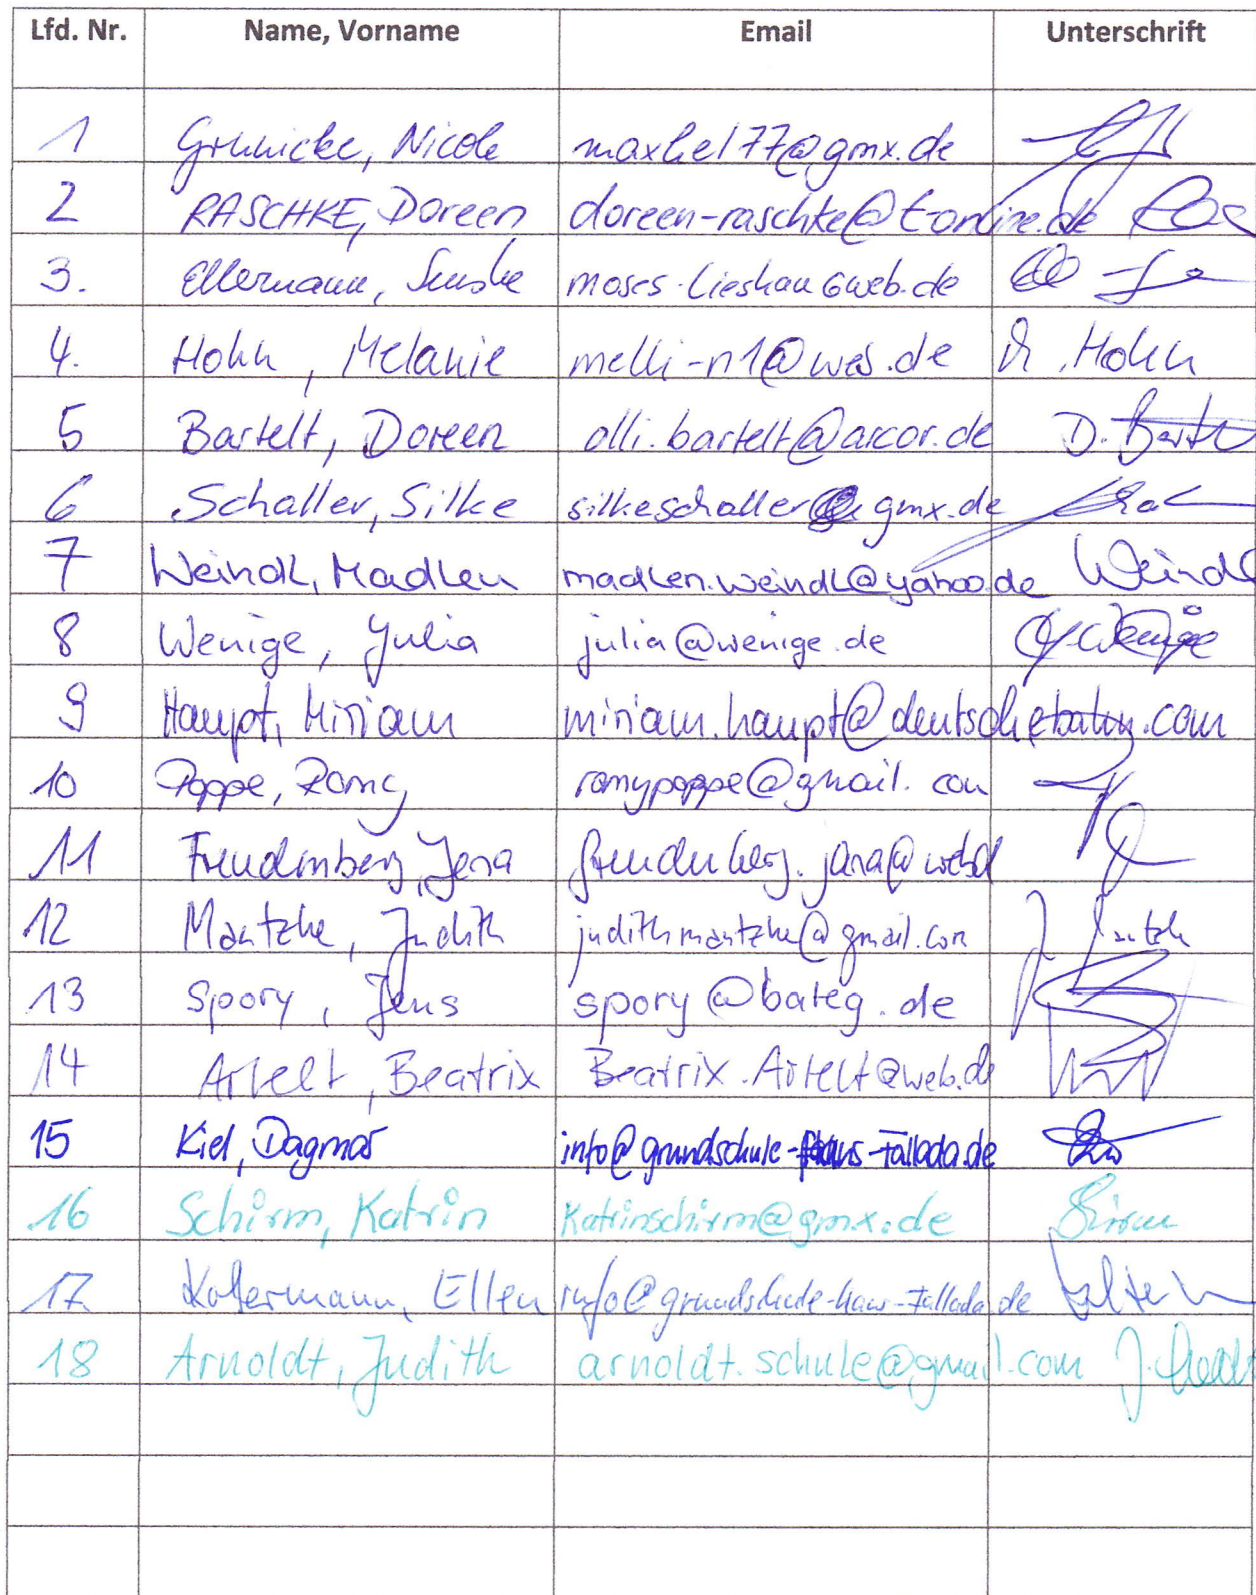 Lfd. Nr. Name, Vorname Email Unterschrift
1 Grunicke, Nicole maxhel77@gmx.de
2 RASCHKE, Doreen doreen-raschke@t-online.de
3. Ellermann,
4. Hohn, Melanie melli-n1@web.de Hohn
5 Bartelt, Doreen olli.bartelt@arcor.de D. Bartelt
6 Schaller, Silke silkeschaller@gmx.de
7 Weindl, Madlen madlen.weindl@yahoo.de Weindl
8 Wenige, Julia julia@wenige.de J. Wenige
9 Haupt, Miriam miriam.haupt@deutschebahn.com
10 Poppe, Romy romypoppe@gmail.com
11 Freudenberg, Jana freudenberg.jana@web.de
12 Mantzke, Judith judithmantzke@gmail.com
13 Spory, Jens spory@bateg.de
14 Artelt, Beatrix Beatrix.Artelt@web.de
15 Kiel, Dagmar info@grundschule-hans-fallada.de
16 Schirm, Katrin Katrinschirm@gmx.de
17 Koltermann, Ellen info@grundschule-hans-fallada.de
18 Arnoldt, Judith arnoldt.schule@gmail.com